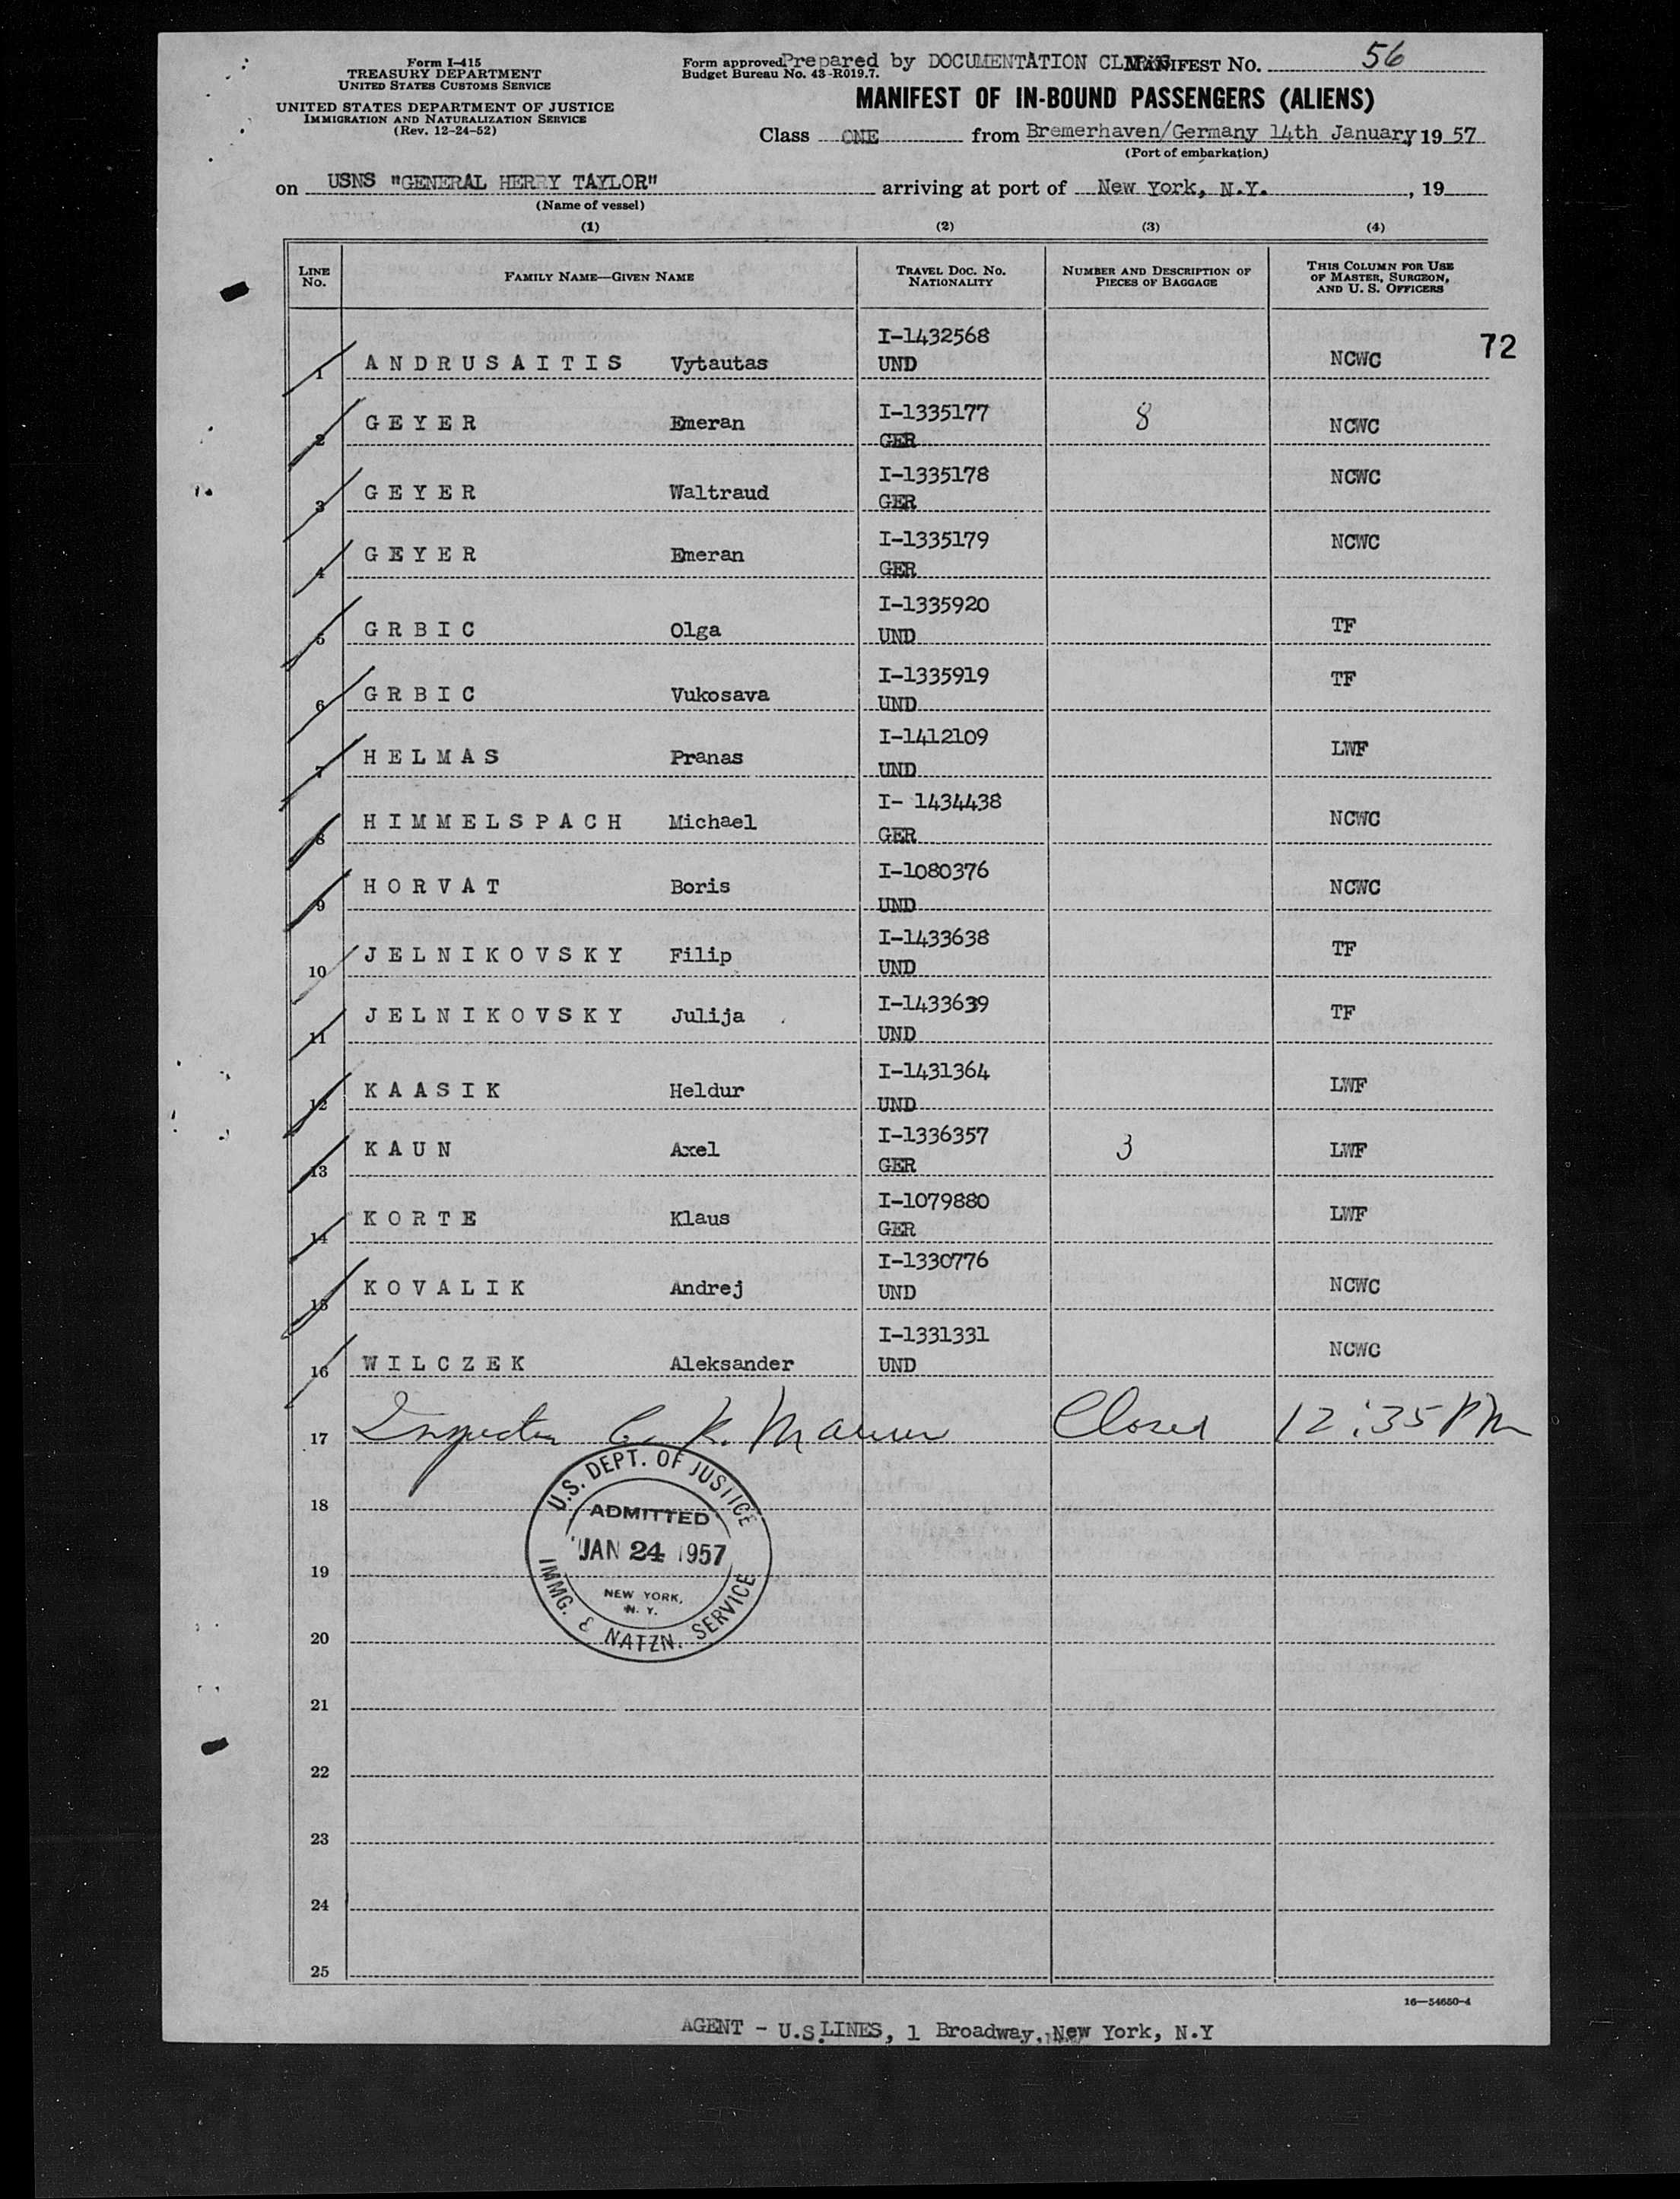 Form I-415
TREASURY DEPARTMENT
UNITED STATES CUSTOMS SERVICE
UNITED STATES DEPARTMENT OF JUSTICE
IMMIGRATION AND NATURALIZATION SERVICE
(Rev. 12-24-52)
Form approved. Prepared by DOCUMENTATION MANIFEST NO. 56
Budget Bureau No. 43-R019.7.
MANIFEST OF IN-BOUND PASSENGERS (ALIENS)
Class ONE from Bremerhaven/Germany 14th January, 19 57
(Port of embarkation)
on USNS "GENERAL HERRY TAYLOR" arriving at port of New York, N.Y., 19
(Name of vessel)
(1) (2) (3) (4)
LINE No. FAMILY NAME—GIVEN NAME TRAVEL DOC. NO. NATIONALITY NUMBER AND DESCRIPTION OF PIECES OF BAGGAGE THIS COLUMN FOR USE OF MASTER, SURGEON, AND U. S. OFFICERS
72
1 ANDRUSAITIS Vytautas I-1432568 UND NCWC
2 GEYER Emeran I-1335177 GER 8 NCWC
3 GEYER Waltraud I-1335178 GER NCWC
4 GEYER Emeran I-1335179 GER NCWC
5 GRBIC Olga I-1335920 UND TF
6 GRBIC Vukosava I-1335919 UND TF
7 HELMAS Pranas I-1412109 UND LWF
8 HIMMELSPACH Michael I- 1434438 GER NCWC
9 HORVAT Boris I-1080376 UND NCWC
10 JELNIKOVSKY Filip I-1433638 UND TF
11 JELNIKOVSKY Julija I-1433639 UND TF
12 KAASIK Heldur I-1431364 UND LWF
13 KAUN Axel I-1336357 GER 3 LWF
14 KORTE Klaus I-1079880 GER LWF
15 KOVALIK Andrej I-1330776 UND NCWC
16 WILCZEK Aleksander I-1331331 UND NCWC
17 Inspector C. K. Closed 12:35 PM
18
19
20
21
22
23
24
25
U.S. DEPT. OF JUSTICE
ADMITTED
JAN 24 1957
NEW YORK,
N. Y.
IMMG. & NATZN. SERVICE
16—54650-4
AGENT - U.S. LINES, 1 Broadway, New York, N.Y